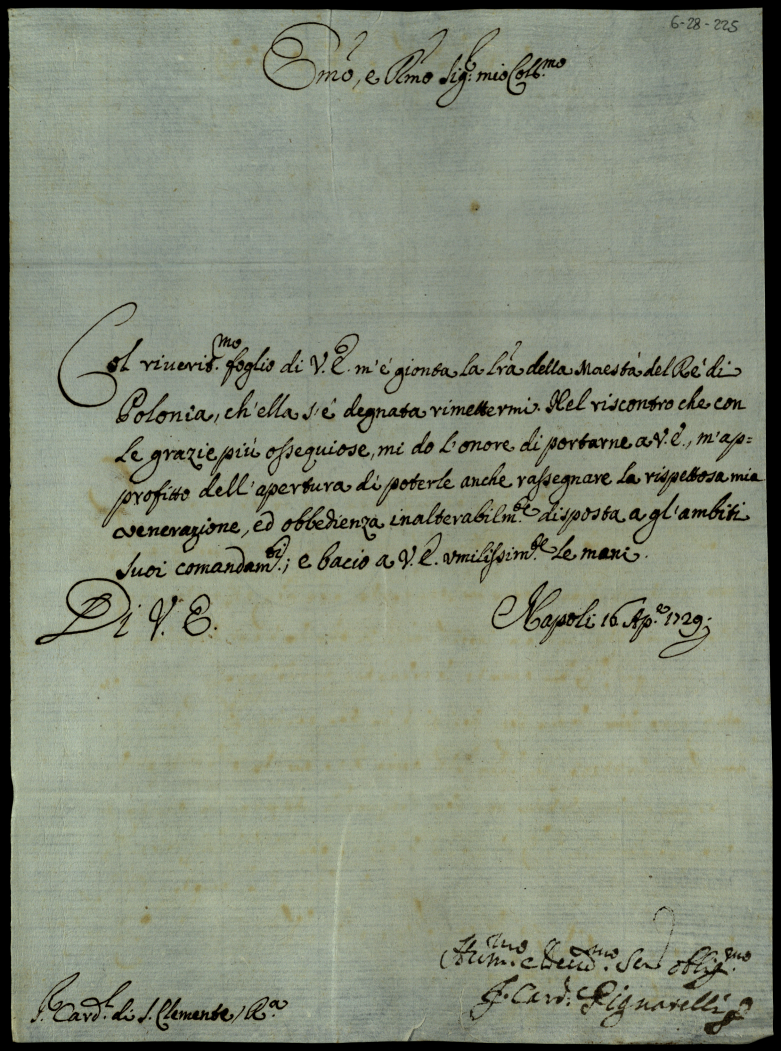 6-28-225
Emo, e Rmo Sig.r mio Coll.mo
Col riverit.mo foglio di V. E. m'é gionta la lra della Maestá del Ré di
Polonia, ch'ella s'é degnata rimettermi. Nel riscontro che con
le grazie piú ossequiose, mi do l'onore di portarne a V. E., m'ap=
profitto dell'apertura di poterle anche rassegnare la rispettosa mia
venerazione, ed obbedienza inalterabilm.te disposta a gl'ambiti
suoi comandam.ti; e bacio a V. E. umilissim.te le mani.
Di V. E. Napoli 16 Ap.e 1729;
Hum.mo e Devd.mo Ser obblig.mo
F. Card. Pignatelli
S. Card.l di S. Clemente, R.a